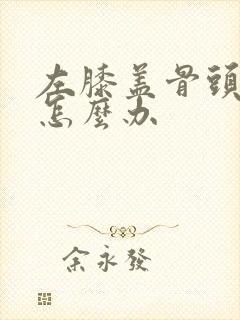 左膝盖骨頭
怎麼办
余永發